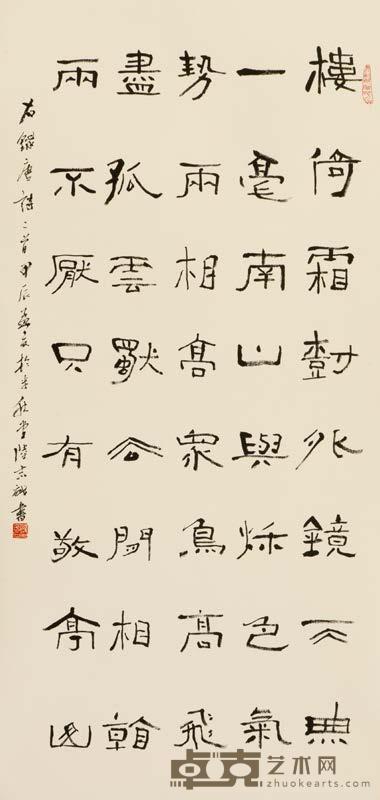 樓倚霜樹外鏡天無
一毫南山與秋色氣
勢兩相高眾鳥高飛
盡孤雲獨去閒相看
兩不厭只有敬亭山
右錄唐詩二首甲辰孟夏於書
卓克艺术网
zhuokearts.com